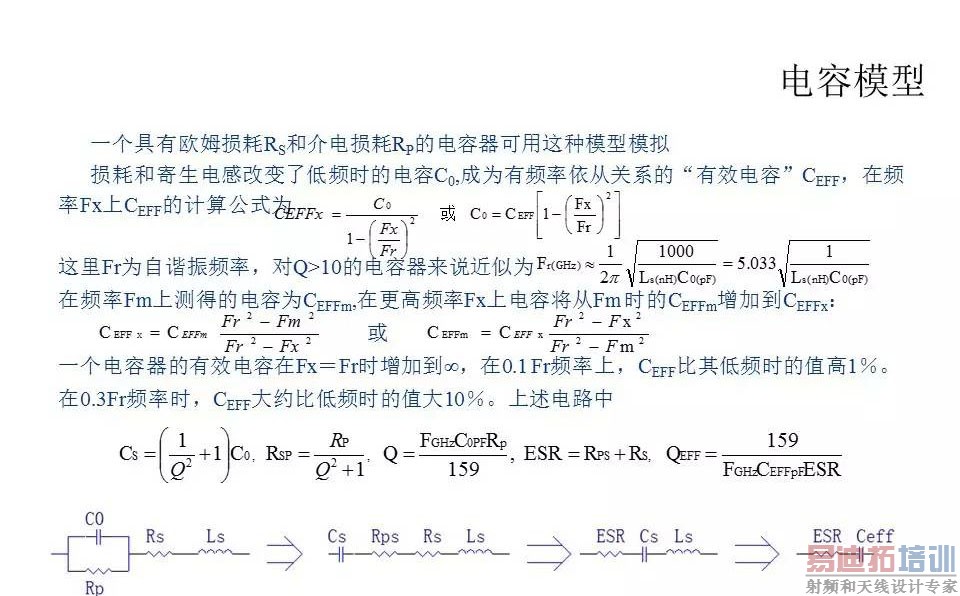 电容模型
一个具有欧姆损耗RS和介电损耗RP的电容器可用这种模型模拟
损耗和寄生电感改变了低频时的电容C0,成为有频率依从关系的“有效电容”CEFF，在频
率Fx上CEFF的计算公式为 CEFFx = C0 / (1−(Fx/Fr)²) 或 C0 = CEFF[1−(Fx/Fr)²]
这里Fr为自谐振频率，对Q>10的电容器来说近似为 Fr(GHz) ≈ 1/2π √(1000 / Ls(nH)C0(pF)) = 5.033 √(1 / Ls(nH)C0(pF))
在频率Fm上测得的电容为CEFFm,在更高频率Fx上电容将从Fm时的CEFFm增加到CEFFx：
CEFF x = CEFFm (Fr² − Fm²) / (Fr² − Fx²) 或 CEFFm = CEFF x (Fr² − Fx²) / (Fr² − Fm²)
一个电容器的有效电容在Fx＝Fr时增加到∞，在0.1Fr频率上，CEFF比其低频时的值高1%。
在0.3Fr频率时，CEFF大约比低频时的值大10%。上述电路中
CS = (1/Q² + 1)C0, RSP = RP / (Q² + 1), Q = FGHzC0PFRp / 159, ESR = RPS + RS, QEFF = 159 / FGHzCEFFpFESR
C0
Rs Ls
Rp
Cs Rps Rs Ls
ESR Cs Ls
ESR Ceff
易迪拓培训
射频和天线设计专家